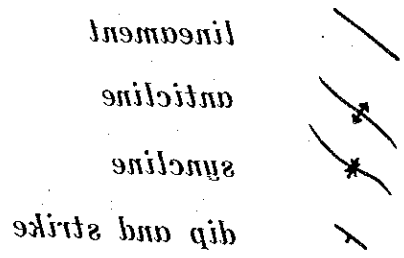 lineament
anticline
syncline
dip and strike